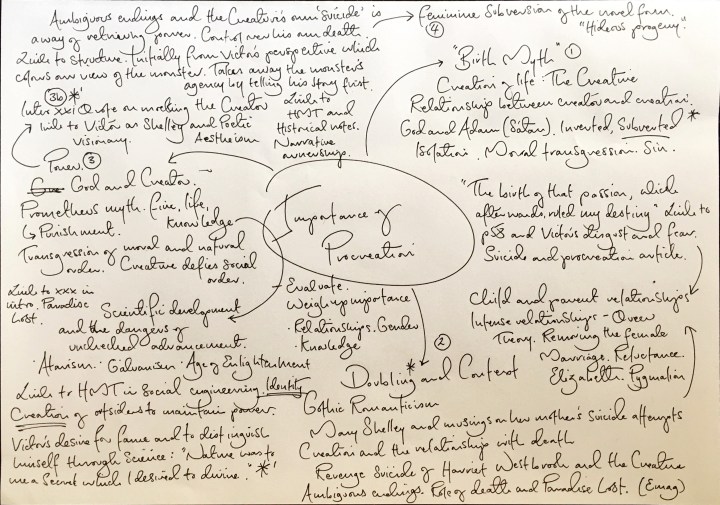 Ambiguous endings and the Creature's own 'suicide' is
a way of retrieving power. Control over his own death.
Link to structure. Initially from Victor's perspective which
colours our view of the monster. Takes away the monster's
agency by telling his story first.
3b *
Intro xxi Quote on mocking the Creator
Link to Victor as Shelley and Poetic
Visionary. Aestheticism
Links to
HMT and
Historical notes.
Narrative
ownership.
Feminine Subversion of the novel from
4
"Hideous progeny."
"Birth Myth" 1
Creation of life: The Creative
Relationships between creator and creation.
God and Adam (Satan). Inverted, Subverted *
Isolation. Moral transgression. Sin.
Power 3
God and Creator.
Prometheus myth. Fire, life,
knowledge
↳ Punishment.
Transgression of moral and natural
order. Creature defies social
order.
Link to xxx in
intro. Paradise
Lost.
Scientific development
and the dangers of
unchecked advancement.
· Atavism · Galvanism · Age of Enlightenment
Link to HMT in social engineering. Identity
Creation of outsiders to maintain power.
Victor's desire for fame and to distinguish
himself through Science: "Nature was to
me a secret which I desired to divine." *
Importance of
Procreation
- Evaluate.
Weigh up importance
· Relationships. Gender
· Knowledge
"The birth of that passion, which
afterwards ruled my destiny" Link to
p58 and Victor's disgust and fear.
Suicide and procreation article.
Child and parent relationships
Intense relationships - Queer
Theory. Removing the female
Marriage. Reluctance.
Elizabeth. Pygmalion
2
* Doubling and Control
Gothic Romanticism
Mary Shelley and musings on her mother's suicide attempts
Creation and the relationship with death
Revenge Suicide of Harriet Westbrook and the Creature
Ambiguous endings. Role of death and Paradise Lost. (Emag)